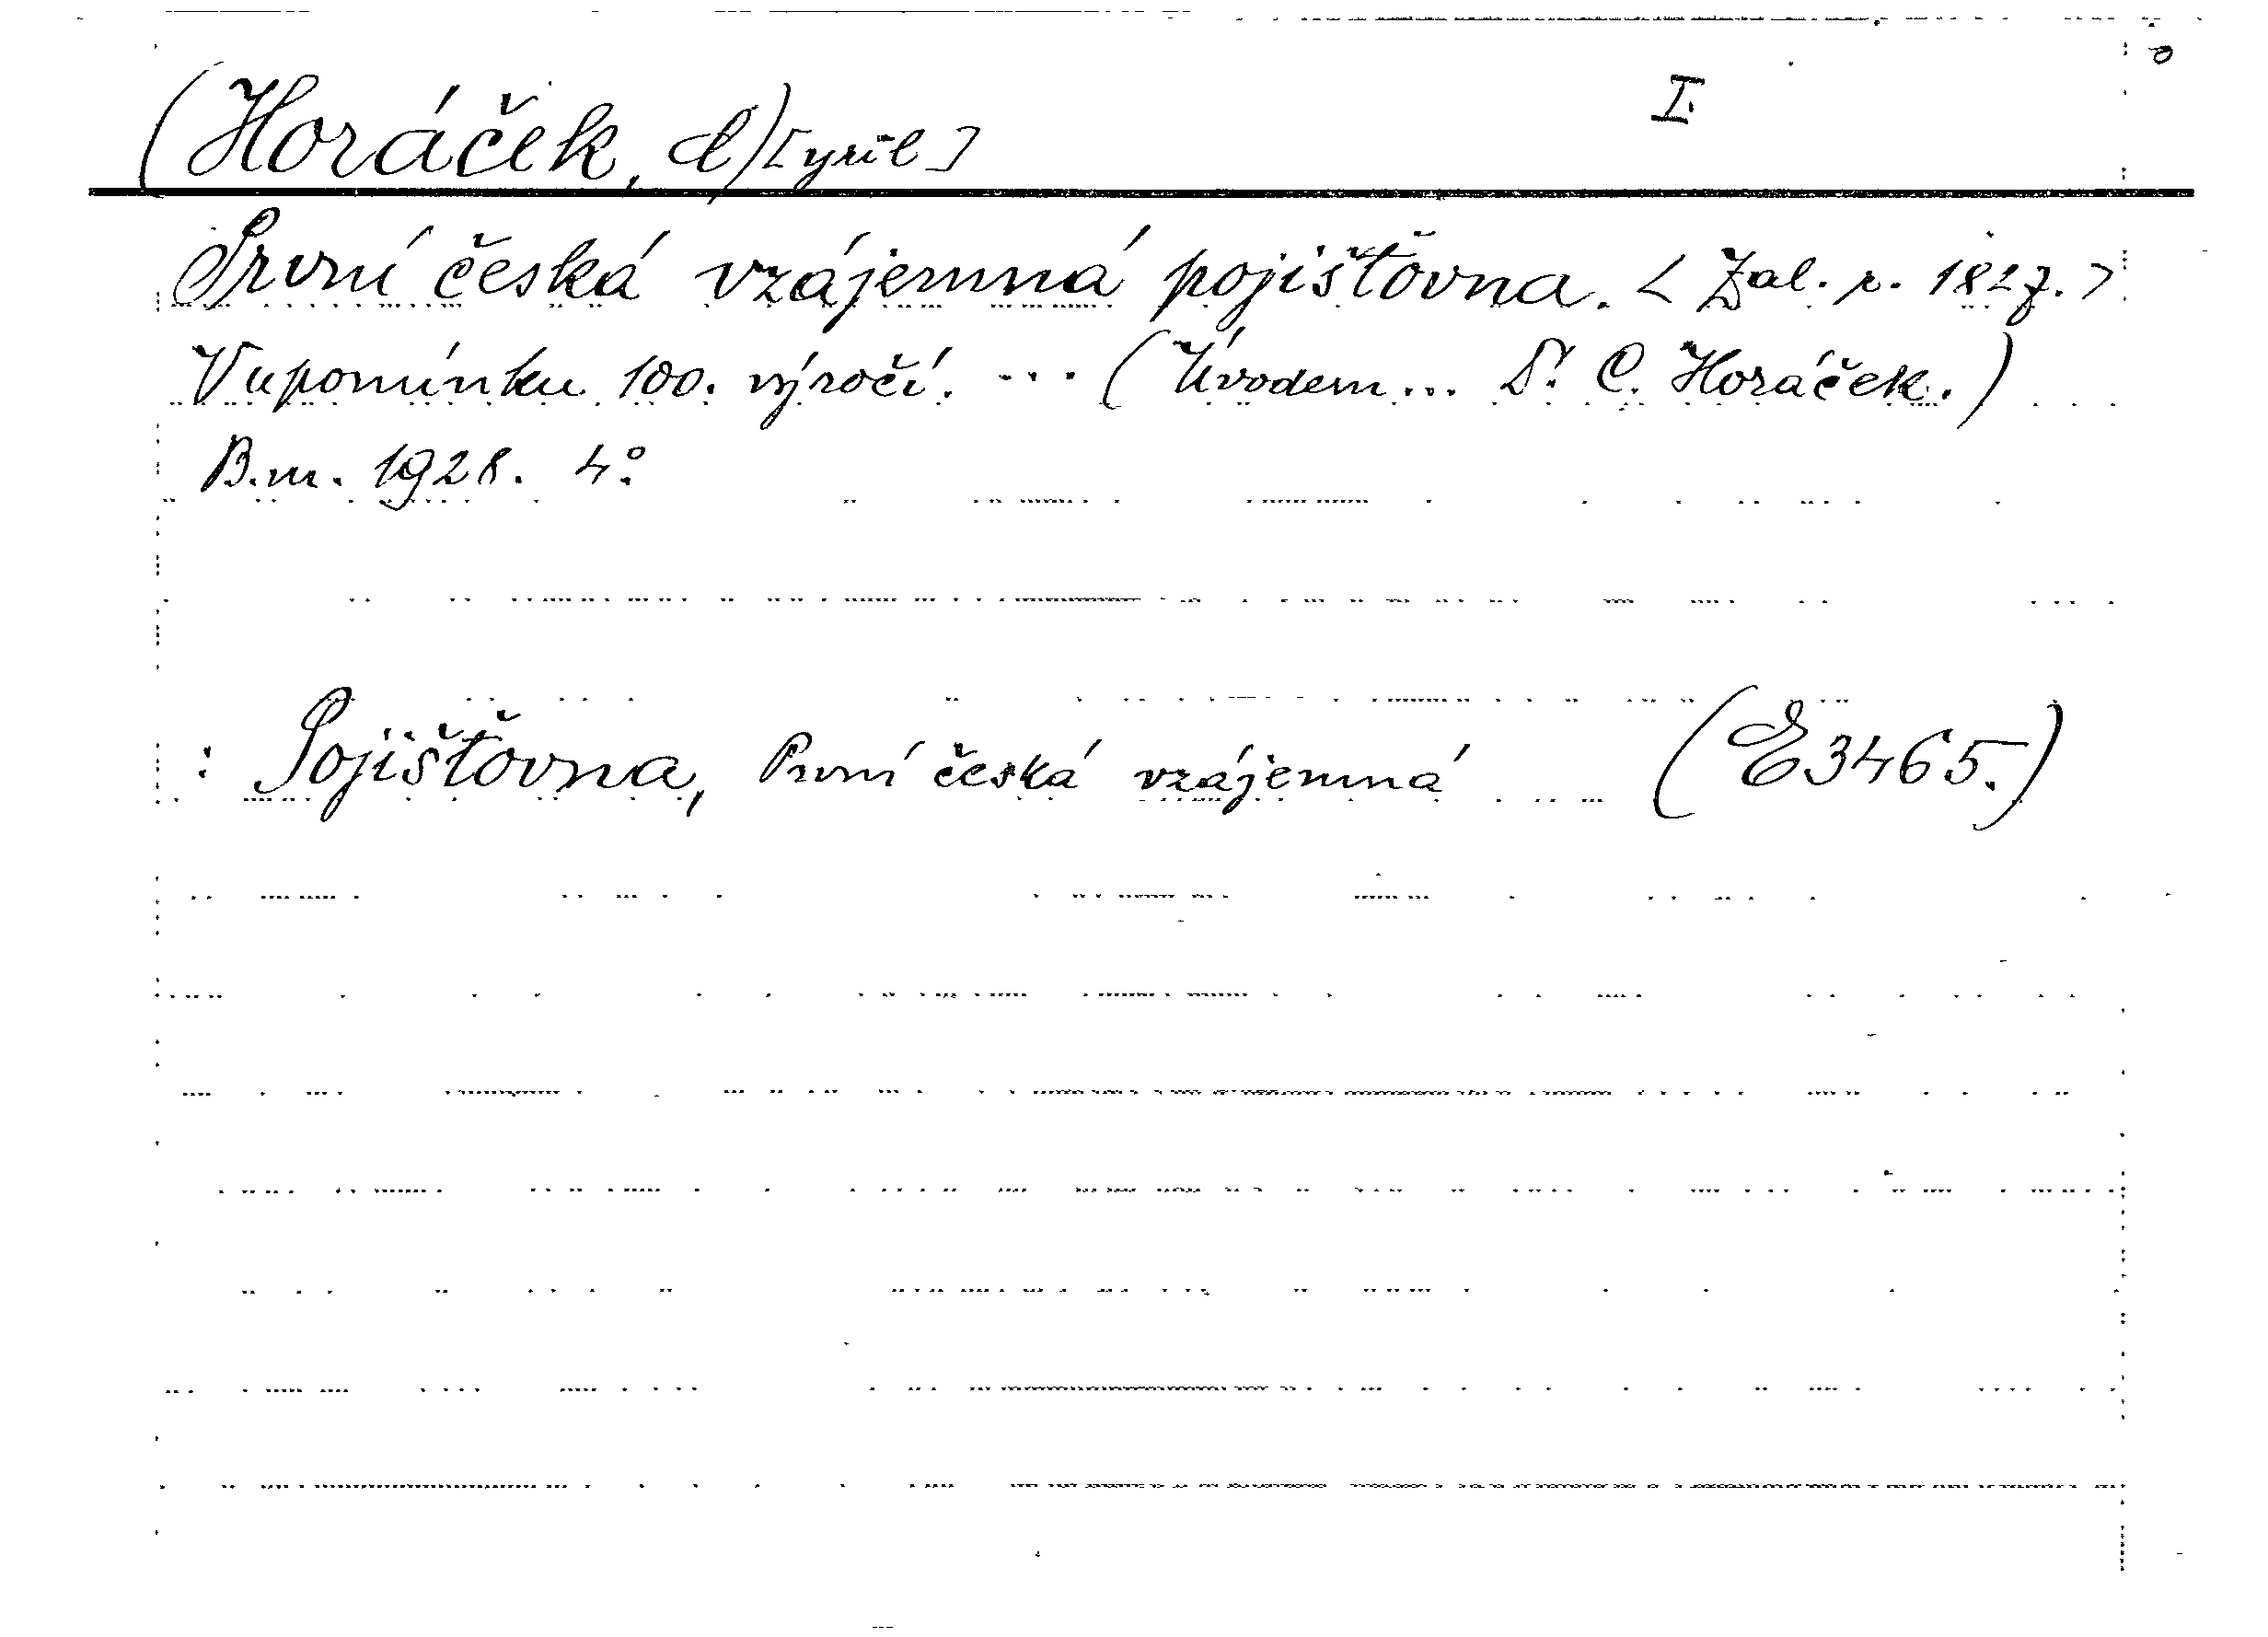 (Horáček, C)[yril] I.
První česká vzájemná pojišťovna. < Zal. r. 1827. >
V upomínku 100. výročí. ... (Úvodem... Dr. C. Horáček.)
B.m. 1928. 4°.
: Pojišťovna, První česká vzájemná (E3465.)